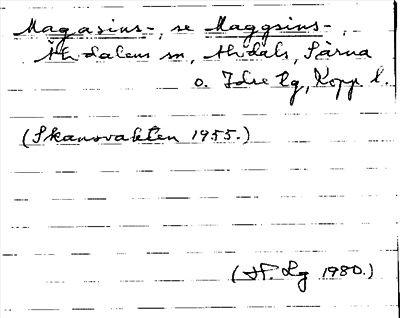 Magasins-, se Maggsins-,
Älvdalens sn, Älvdals, Särna
o. Idre tg, Kopp l.
(Skansvakten 1955.)
(H. Lg 1980.)